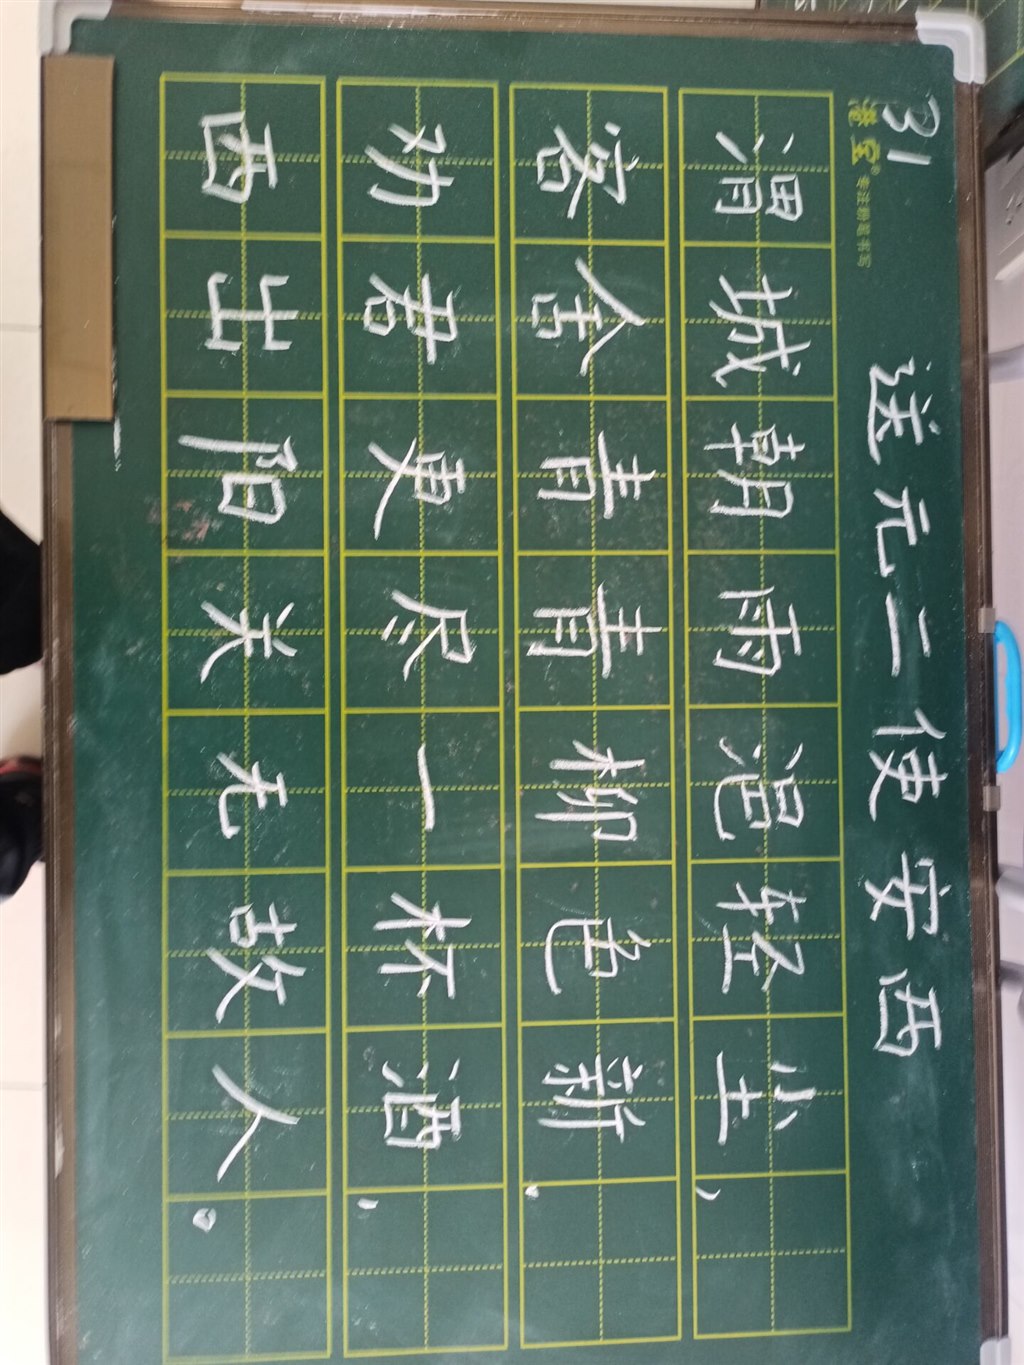 31
港堂® 专注粉笔书写
送元二使安西
渭城朝雨浥轻尘，
客舍青青柳色新。
劝君更尽一杯酒，
西出阳关无故人。